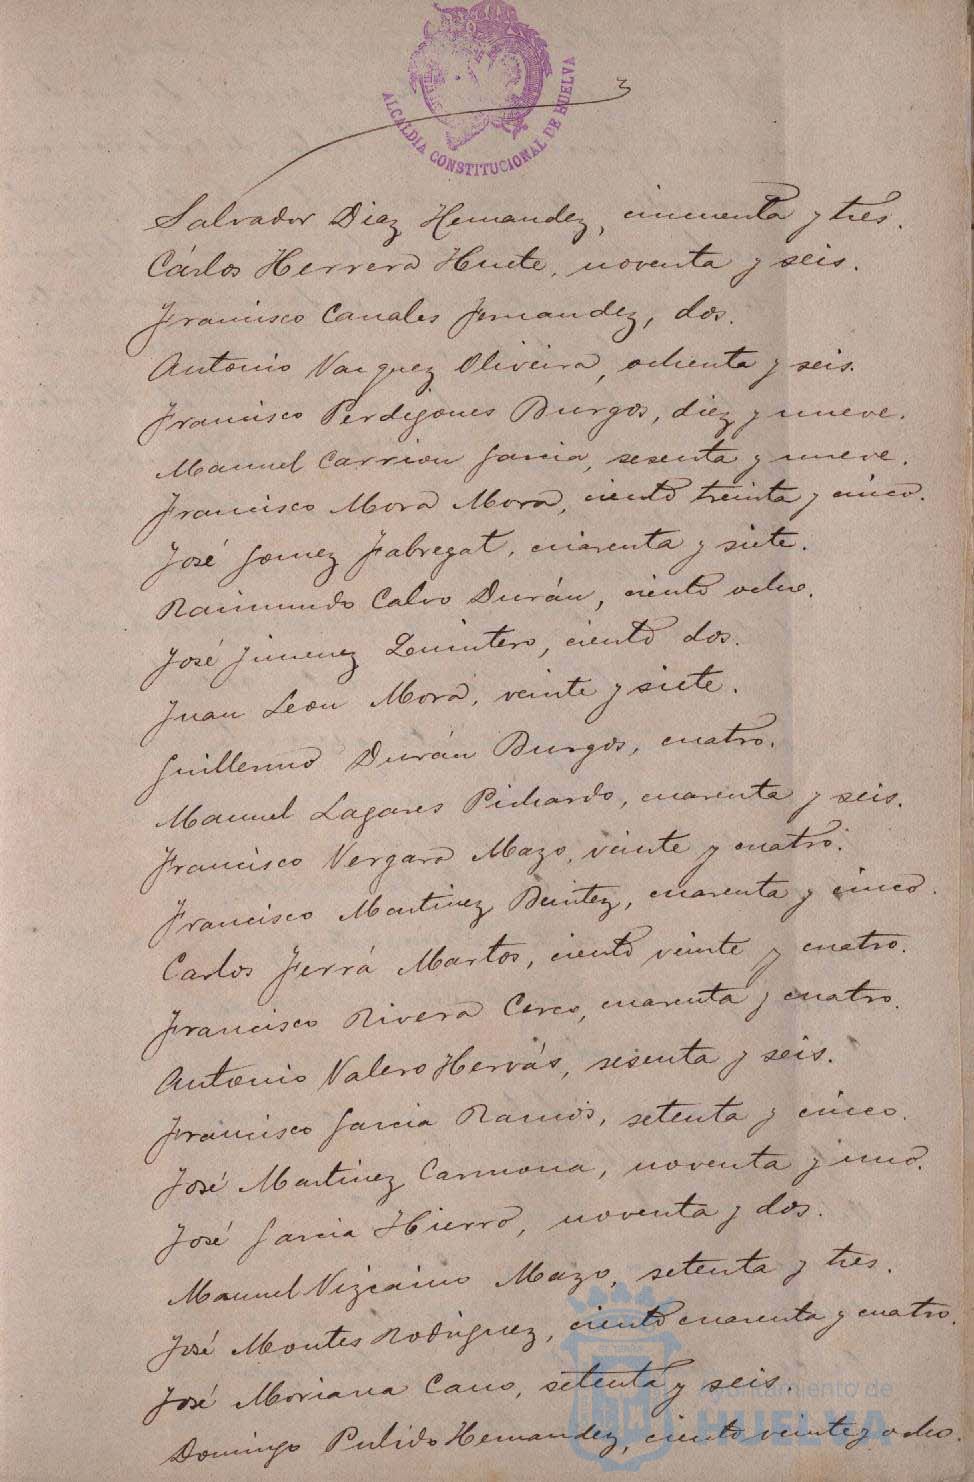 ALCALDIA CONSTITUCIONAL DE HUELVA
Salvador Diaz Hernandez, cincuenta y tres.
Cárlos Herrera Huete, noventa y seis.
Francisco Canales Fernandez, dos.
Antonio Vazquez Oliveira, ochenta y seis.
Francisco Perdigones Burgos, diez y nueve.
Manuel Carrion Garcia, sesenta y nueve.
Francisco Mora Mora, ciento treinta y cinco.
José Gomez Fabregat, cuarenta y siete.
Raimundo Calvo Durán, ciento ocho.
José Jimenez Quintero, ciento dos.
Juan Leon Mora, veinte y siete.
Guillermo Durán Burgos, cuatro.
Manuel Lagares Pichardo, cuarenta y seis.
Francisco Vergara Mazo, veinte y cuatro.
Francisco Martinez Benitez, cuarenta y cinco.
Carlos Ferrá Martos, ciento veinte y cuatro.
Francisco Rivera Cerco, cuarenta y cuatro.
Antonio Valero Hervás, sesenta y seis.
Francisco Garcia Ramos, setenta y cinco.
José Martinez Carmona, noventa y uno.
José Garcia Hierro, noventa y dos.
Manuel Vizcaino Mazo, setenta y tres.
José Montes Rodriguez, ciento cuarenta y cuatro.
José Moriana Cano, setenta y seis.
Domingo Pulido Hernandez, ciento veinte y ocho.
Ayuntamiento de
HUELVA